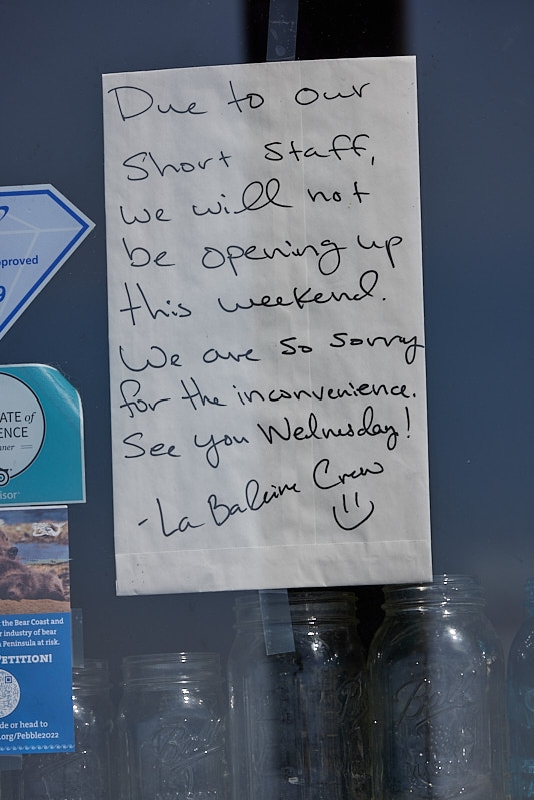 Due to our
Short Staff,
we will not
be opening up
this weekend.
We are so sorry
for the inconvenience.
See you Wednesday!
- La Baleine Crew
proved
9
ATE of
ENCE
ner
isor
the Bear Coast and
industry of bear
Peninsula at risk.
ETITION!
de or head to
.org/Pebble2022
Ball